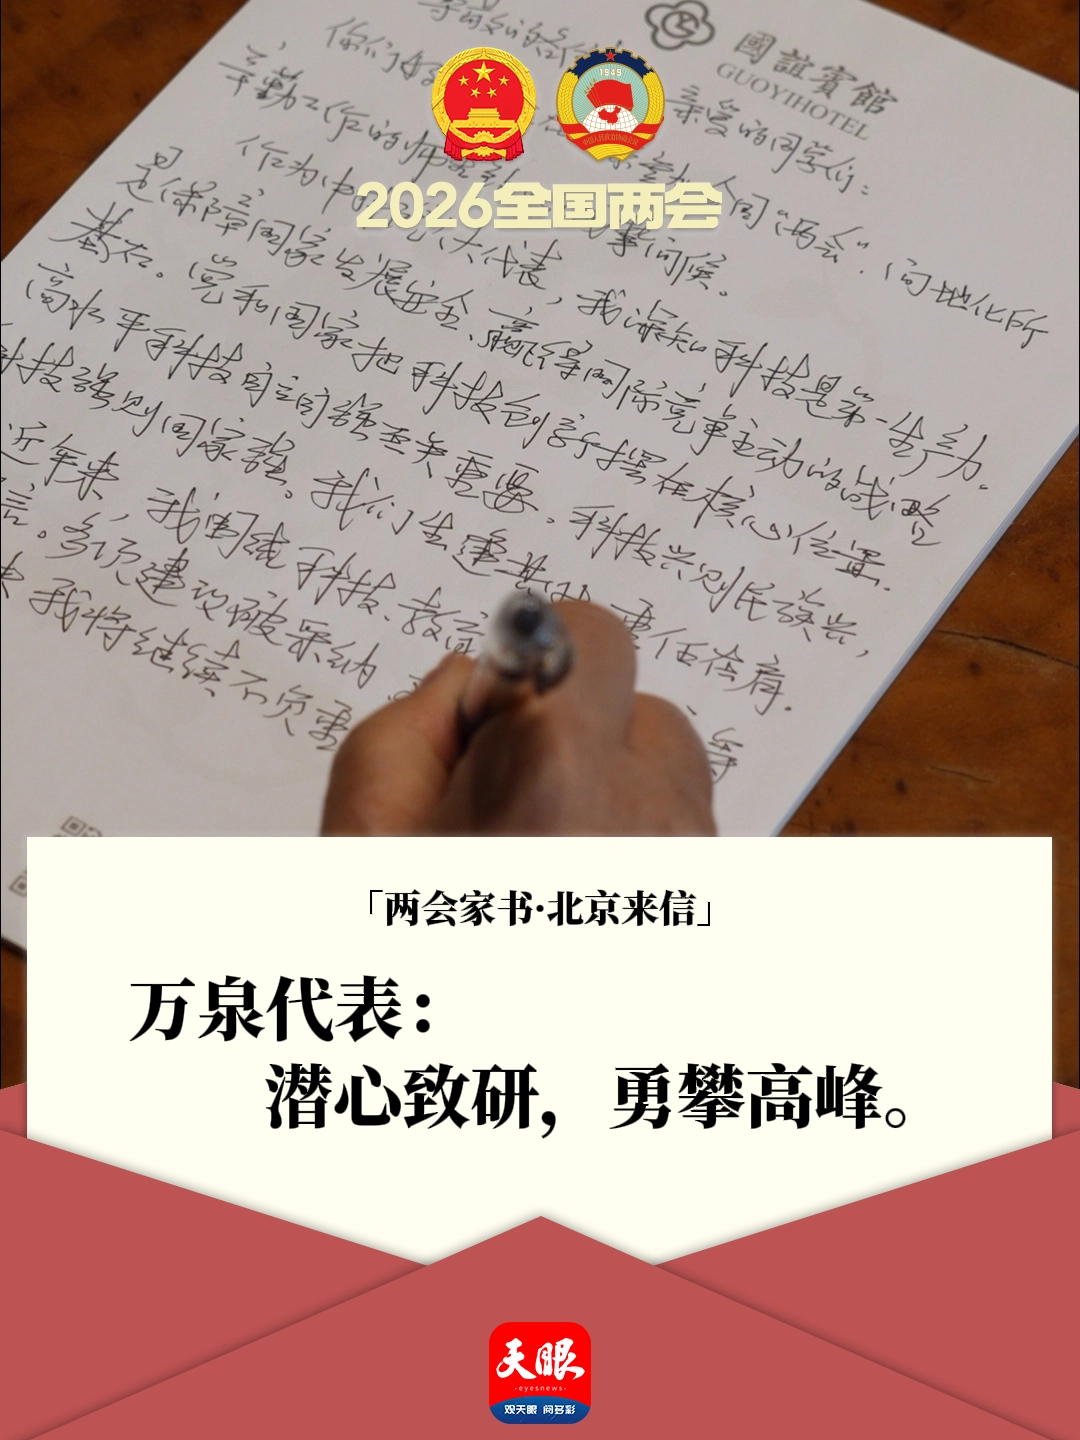 國誼賓館
GUOYIHOTEL
1949
2026全国两会
尊敬的各位
你们好 亲爱的同学们：
人间“两会”，向地化所
辛勤工作的 问候。
作为 大代表，我深知科技是第一生产力。
是保障国家发展安全、赢得国际竞争主动的战略
基石。党和国家把科技创新摆在核心位置。
高水平科技自立自强至关重要。科技兴则民族兴，
科技强则国家强。我们生逢其时 重任在肩。
近年来，我围绕科技、教育 等
言。多项建议被采纳
我将继续不负重
「两会家书·北京来信」
万泉代表：
潜心致研，勇攀高峰。
天眼
·eyesnews·
观天眼 阅多彩